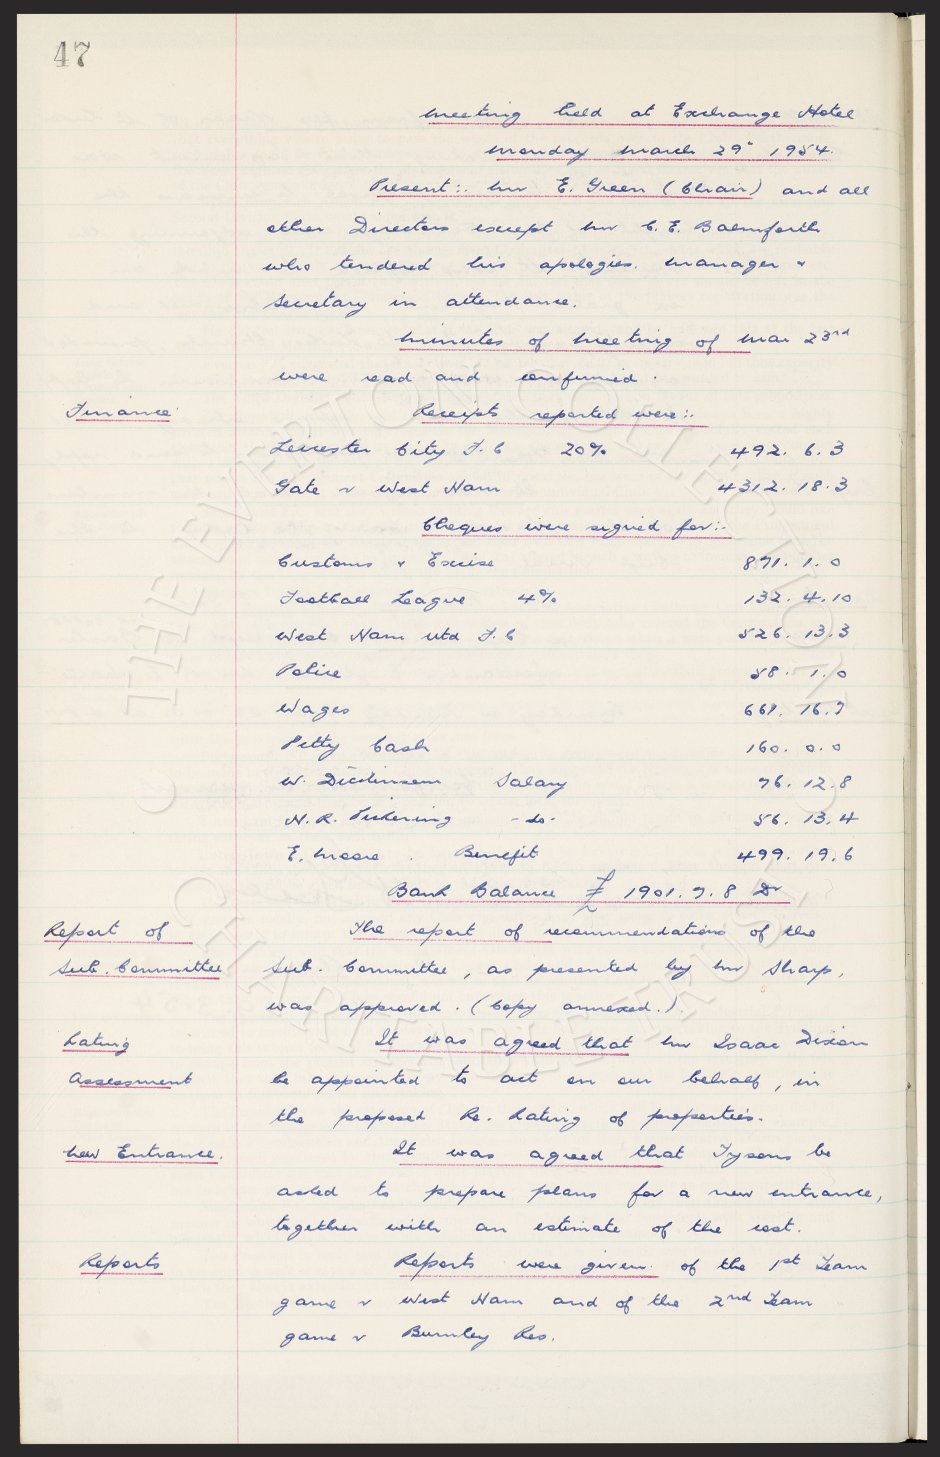 47
Meeting held at Exchange Hotel
Monday March 29" 1954.
Present:. Mr E. Green (Chair) and all
other Directors except Mr C. E. Balmforth
who tendered his apologies. Manager &
Secretary in attendance.
Minutes of Meeting of Mar 23rd
were read and confirmed.
Finance Receipts reported were:.
Leicester City F.C 20% 492. 6. 3
Gate v West Ham 4312. 18. 3
Cheques were signed for:.
Customs & Excise 871. 1. 0
Football League 4% 132. 4. 10
West Ham Utd F.C 526. 13. 3
Police 58. 1. 0
Wages 16. 7
Petty Cash 160. 0. 0
W. Dickinson Salary 76. 12. 8
H. R. Pickering -do- 56. 13. 4
E. Moore. Benefit 499. 19. 6
Bank Balance £ 1901. 7. 8 Dr
Report of The report of recommendations of the
Sub. Committee Sub. Committee, as presented by Mr Sharp,
was approved. (Copy annexed.)
Rating It was agreed that Mr Isaac Dixon
Assessment be appointed to act on our behalf, in
the proposed Re. Rating of properties.
New Entrance. It was agreed that Tysons be
asked to prepare plans for a new entrance,
together with an estimate of the cost.
Reports Reports were given of the 1st Team
game v West Ham and of the 2nd Team
game v Burnley Res.
© THE EVERTON COLLECTION
CHARITABLE TRUST